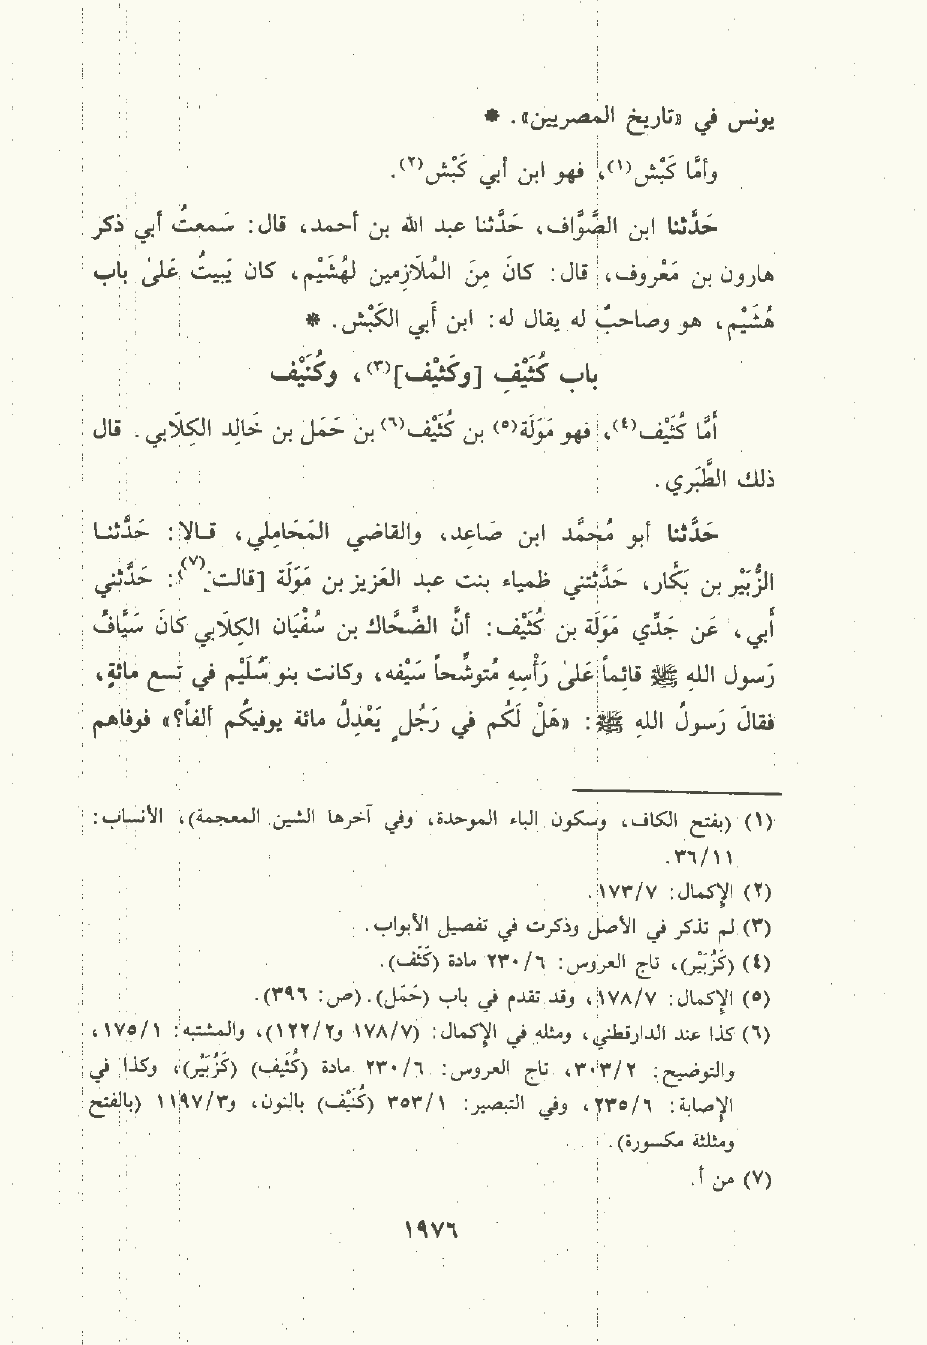 يونس في «تاريخ المصريين». *
وأمَّا كَبْش(١)، فهو ابن أبي كَبْش(٢).
حَدَّثنا ابن الصَّوَّاف، حَدَّثنا عبد الله بن أحمد، قال: سَمعتُ أبي ذكر
هارون بن مَعْروف، قال: كانَ مِنَ المُلَازِمين لهُشَيْم، كان يَبيتُ عَلىٰ باب
هُشَيْم، هو وصاحبٌ له يقال له: ابن أَبي الكَبْش. *
باب كُثَيْفِ [وكَثِيْف](٣)، وكُنَيْف
أمَّا كُثَيْف(٤)، فهو مَوَلَة(٥) بن كُثَيْف(٦) بن حَمَل بن خَالِد الكِلَابي. قال
ذلك الطَّبَري.
حَدَّثنا أبو مُحمَّد ابن صَاعِد، والقاضي المَحَامِلي، قـالا: حَدَّثنـا
الزُّبَيْر بن بَكَّار، حَدَّثتني ظمياء بنت عبد العَزيز بن مَوَلَة [قالت:](٧): حَدَّثني
أَبي، عَن جَدِّي مَوَلَة بن كُثَيْف: أنَّ الضَّحَّاك بن سُفْيَان الكِلَابي كانَ سَيَّافُ
رَسول اللهِ ﷺ قائِماً عَلىٰ رَأْسِهِ مُتوشِّحاً سَيْفه، وكانت بنو سُلَيْم في تسع مائةٍ،
فقالَ رَسولُ اللهِ ﷺ: «هَلْ لَكُم في رَجُلٍ يَعْدِلُ مائة يوفيكُم ألفاً؟» فوفاهم
(١) (بفتح الكاف، وسكون الباء الموحدة، وفي آخرها الشين المعجمة)، الأنساب:
٣٦/١١.
(٢) الإكمال: ١٧٣/٧.
(٣) لم تذكر في الأصل وذكرت في تفصيل الأبواب.
(٤) (كَزُبَيْر)، تاج العروس: ٢٣٠/٦ مادة (كَثَف).
(٥) الإكمال: ١٧٨/٧، وقد تقدم في باب (حَمَل). (ص: ٣٩٦).
(٦) كذا عند الدارقطني، ومثله في الإكمال: (١٧٨/٧ و١٢٢/٢)، والمشتبه: ١٧٥/١،
والتوضيح: ٣٠٣/٢، تاج العروس: ٢٣٠/٦ مادة (كُثَيف) (كَزُبَيْر)، وكذا في
الإصابة: ٢٣٥/٦، وفي التبصير: ٣٥٣/١ (كُنَيْف) بالنون، و١١٩٧/٣ (بالفتح
ومثلثة مكسورة).
(٧) من أ.
١٩٧٦